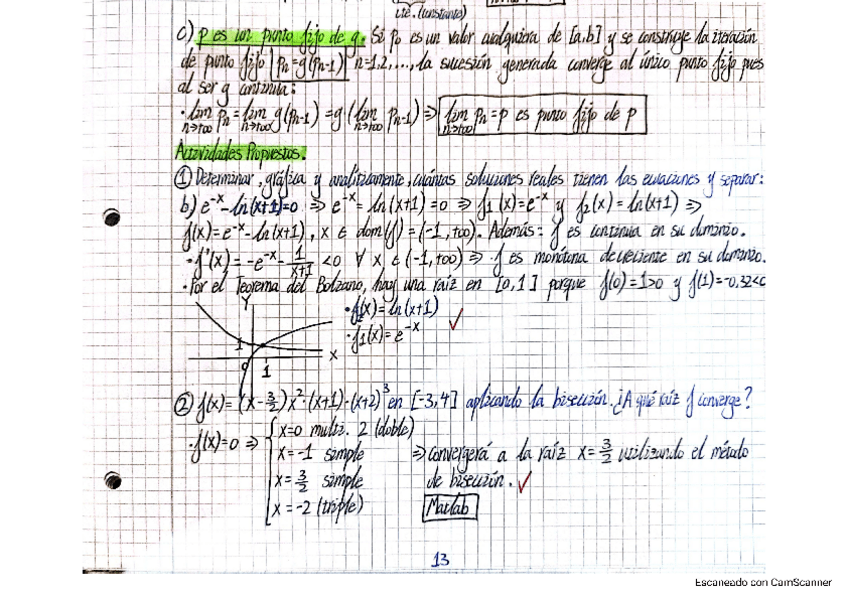 cte. (constante)
c) p es un punto fijo de g. Si p₀ es un valor cualquiera de [a,b] y se construye la iteración
de punto fijo pₙ=g(pₙ₋₁) n=1,2,..., la sucesión generada converge al único punto fijo pues
al ser g continua:
· lim n→+∞ pₙ = lim n→+∞ g(pₙ₋₁) = g(lim n→+∞ pₙ₋₁) ⇒ lim n→+∞ pₙ = p es punto fijo de p
Actividades Propuestas.
① Determinar, gráfica y analíticamente, cuántas soluciones reales tienen las ecuaciones y separar:
b) e^-x - ln(x+1)=0 ⇒ e^-x - ln(x+1) = 0 ⇒ f₁(x)=e^-x y f₂(x)=ln(x+1) ⇒
f(x)=e^-x - ln(x+1), x ∈ dom(f) = (-1,+∞). Además: f es continua en su dominio.
· f'(x) = -e^-x - 1/(x+1) <0 ∀ x ∈ (-1,+∞) ⇒ f es monótona decreciente en su dominio.
· Por el Teorema del Bolzano, hay una raíz en [0,1] porque f(0)=1>0 y f(1)=-0,32<0
Y
· f₂(x)=ln(x+1)
· f₁(x)=e^-x ✓
1
x
0
1
② f(x)=(x-3/2)x²·(x+1)·(x+2)³ en [-3,4] aplicando la bisección. ¿A qué raíz f converge?
· f(x)=0 ⇒ { x=0 multi. 2 (doble)
x=-1 simple ⇒ convergerá a la raíz x=3/2 utilizando el método
x=3/2 simple de bisección. ✓
x=-2 (triple) Matlab
13
Escaneado con CamScanner